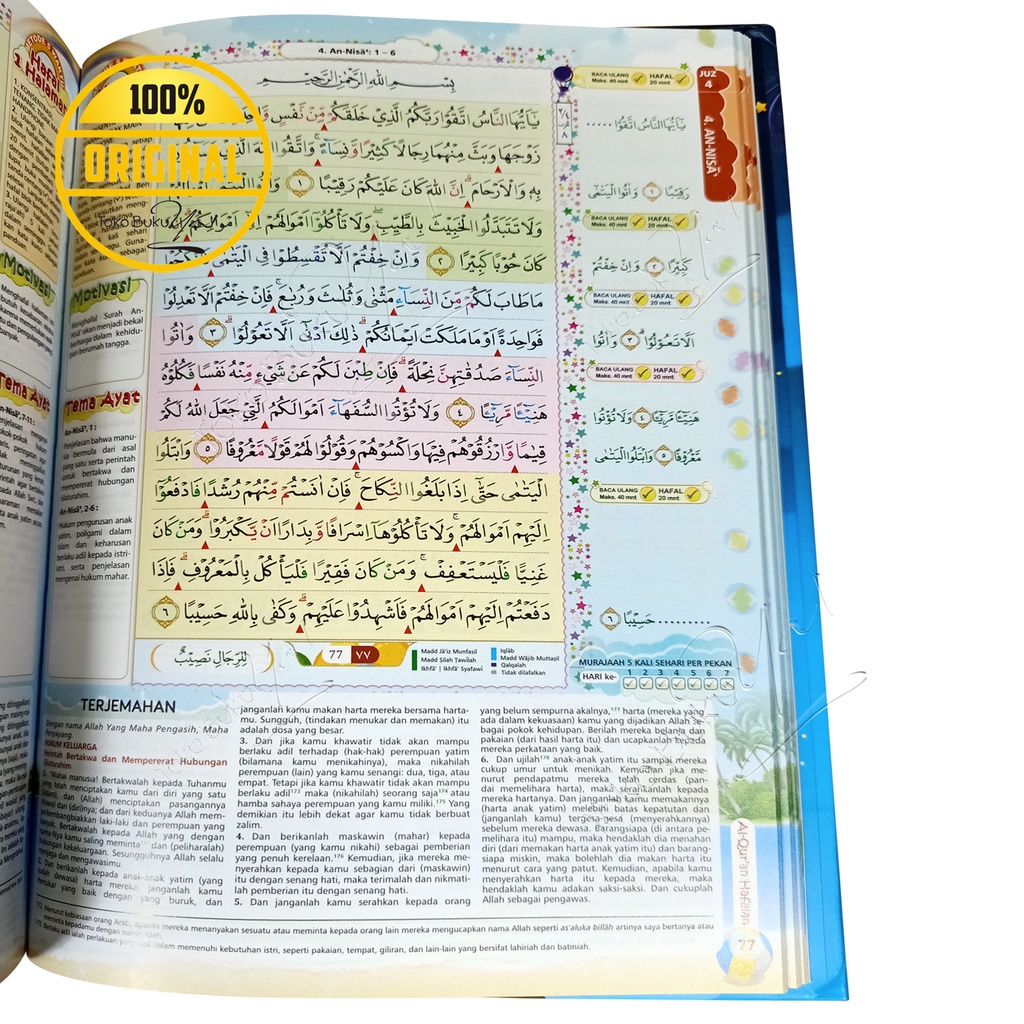 4. An-Nisā': 1 – 6
بِسْمِ اللّٰهِ الرَّحْمٰنِ الرَّحِيْمِ
يٰٓاَيُّهَا النَّاسُ اتَّقُوْا رَبَّكُمُ الَّذِيْ خَلَقَكُمْ مِّنْ نَّفْسٍ
زَوْجَهَا وَبَثَّ مِنْهُمَا رِجَالًا كَثِيْرًا وَّنِسَاۤءً ۚ وَاتَّقُوا اللّٰهَ الَّذِيْ
بِهٖ وَالْاَرْحَامَ ۗ اِنَّ اللّٰهَ كَانَ عَلَيْكُمْ رَقِيْبًا ١ وَاٰتُوا الْيَتٰمٰٓى
وَلَا تَتَبَدَّلُوا الْخَبِيْثَ بِالطَّيِّبِ ۖ وَلَا تَأْكُلُوْٓا اَمْوَالَهُمْ اِلٰٓى اَمْوَالِكُمْ ۗ
كَانَ حُوْبًا كَبِيْرًا ٢ وَاِنْ خِفْتُمْ اَلَّا تُقْسِطُوْا فِى الْيَتٰمٰى فَانْكِحُوْا
مَا طَابَ لَكُمْ مِّنَ النِّسَاۤءِ مَثْنٰى وَثُلٰثَ وَرُبٰعَ ۚ فَاِنْ خِفْتُمْ اَلَّا تَعْدِلُوْا
فَوَاحِدَةً اَوْ مَا مَلَكَتْ اَيْمَانُكُمْ ۗ ذٰلِكَ اَدْنٰٓى اَلَّا تَعُوْلُوْا ۗ ٣ وَاٰتُوا
النِّسَاۤءَ صَدُقٰتِهِنَّ نِحْلَةً ۗ فَاِنْ طِبْنَ لَكُمْ عَنْ شَيْءٍ مِّنْهُ نَفْسًا فَكُلُوْهُ
هَنِيْۤـًٔا مَّرِيْۤـًٔا ٤ وَلَا تُؤْتُوا السُّفَهَاۤءَ اَمْوَالَكُمُ الَّتِيْ جَعَلَ اللّٰهُ لَكُمْ
قِيٰمًا وَّارْزُقُوْهُمْ فِيْهَا وَاكْسُوْهُمْ وَقُوْلُوْا لَهُمْ قَوْلًا مَّعْرُوْفًا ٥ وَابْتَلُوا
الْيَتٰمٰى حَتّٰىٓ اِذَا بَلَغُوا النِّكَاحَ ۚ فَاِنْ اٰنَسْتُمْ مِّنْهُمْ رُشْدًا فَادْفَعُوْٓا
اِلَيْهِمْ اَمْوَالَهُمْ ۚ وَلَا تَأْكُلُوْهَآ اِسْرَافًا وَّبِدَارًا اَنْ يَّكْبَرُوْا ۗ وَمَنْ كَانَ
غَنِيًّا فَلْيَسْتَعْفِفْ ۚ وَمَنْ كَانَ فَقِيْرًا فَلْيَأْكُلْ بِالْمَعْرُوْفِ ۗ فَاِذَا
دَفَعْتُمْ اِلَيْهِمْ اَمْوَالَهُمْ فَاَشْهِدُوْا عَلَيْهِمْ ۗ وَكَفٰى بِاللّٰهِ حَسِيْبًا ٦
لِلرِّجَالِ نَصِيْبٌ
77 ٧٧
Madd Jā'iz Munfasil
Madd Ṣilah Ṭawilah
Ikhfā' | Ikhfā' Syafawi
Iqlāb
Madd Wājib Muttaṣil
Qalqalah
Tidak dilafalkan
BACA ULANG Maks. 40 mnt HAFAL 20 mnt
يٰٓاَيُّهَا النَّاسُ اتَّقُوْا ......
رَقِيْبًا ١ وَاٰتُوا الْيَتٰمٰٓى
BACA ULANG Maks. 40 mnt HAFAL 20 mnt
كَبِيْرًا ٢ وَاِنْ خِفْتُمْ
BACA ULANG Maks. 40 mnt HAFAL 20 mnt
اَلَّا تَعُوْلُوْا ٣ وَاٰتُوا
BACA ULANG Maks. 40 mnt HAFAL 20 mnt
هَنِيْۤـًٔا مَّرِيْۤـًٔا ٤ وَلَا تُؤْتُوا
مَّعْرُوْفًا ٥ وَابْتَلُوا الْيَتٰمٰى
BACA ULANG Maks. 40 mnt HAFAL 20 mnt
......... حَسِيْبًا ٦
MURAJAAH 5 KALI SEHARI PER PEKAN
HARI ke- 1 2 3 4 5 6 7
JUZ 4
4. AN-NISĀ'
100%
ORIGINAL
Toko Buku
Motivasi
Menghafal Surah An-
Nisā' akan menjadi bekal
berharga dalam kehidu-
pan berumah tangga.
Tema Ayat
An-Nisā', 1:
Penjelasan bahwa manu-
sia bermula dari asal
yang satu serta perintah
untuk bertakwa dan
mempererat hubungan
silaturahim.
An-Nisā', 2-6:
Hukum pengurusan anak
yatim, poligami dalam
Islam dan keharusan
berlaku adil kepada istri-
istri, serta penjelasan
mengenai hukum mahar.
TERJEMAHAN
Dengan nama Allah Yang Maha Pengasih, Maha
Penyayang.
HUKUM KELUARGA
Perintah Bertakwa dan Mempererat Hubungan
Silaturahim
1. Wahai manusia! Bertakwalah kepada Tuhanmu
yang telah menciptakan kamu dari diri yang satu
(Adam), dan (Allah) menciptakan pasangannya
(Hawa) dari (diri)nya; dan dari keduanya Allah mem-
perkembangbiakkan laki-laki dan perempuan yang
banyak. Bertakwalah kepada Allah yang dengan
nama-Nya kamu saling meminta dan (peliharalah)
hubungan kekeluargaan. Sesungguhnya Allah selalu
menjaga dan mengawasimu.
2. Dan berikanlah kepada anak-anak yatim (yang
sudah dewasa) harta mereka, janganlah kamu
menukar yang baik dengan yang buruk, dan
janganlah kamu makan harta mereka bersama harta-
mu. Sungguh, (tindakan menukar dan memakan) itu
adalah dosa yang besar.
3. Dan jika kamu khawatir tidak akan mampu
berlaku adil terhadap (hak-hak) perempuan yatim
(bilamana kamu menikahinya), maka nikahilah
perempuan (lain) yang kamu senangi: dua, tiga, atau
empat. Tetapi jika kamu khawatir tidak akan mampu
berlaku adil¹⁷³ maka (nikahilah) seorang saja¹⁷⁴ atau
hamba sahaya perempuan yang kamu miliki.¹⁷⁵ Yang
demikian itu lebih dekat agar kamu tidak berbuat
zalim.
4. Dan berikanlah maskawin (mahar) kepada
perempuan (yang kamu nikahi) sebagai pemberian
yang penuh kerelaan.¹⁷⁶ Kemudian, jika mereka me-
nyerahkan kepada kamu sebagian dari (maskawin)
itu dengan senang hati, maka terimalah dan nikmati-
lah pemberian itu dengan senang hati.
5. Dan janganlah kamu serahkan kepada orang
yang belum sempurna akalnya,¹⁷⁷ harta (mereka yang
ada dalam kekuasaan) kamu yang dijadikan Allah se-
bagai pokok kehidupan. Berilah mereka belanja dan
pakaian (dari hasil harta itu) dan ucapkanlah kepada
mereka perkataan yang baik.
6. Dan ujilah¹⁷⁸ anak-anak yatim itu sampai mereka
cukup umur untuk menikah. Kemudian jika me-
nurut pendapatmu mereka telah cerdas (pan-
dai memelihara harta), maka serahkanlah kepada
mereka hartanya. Dan janganlah kamu memakannya
(harta anak yatim) melebihi batas kepatutan dan
(janganlah kamu) tergesa-gesa (menyerahkannya)
sebelum mereka dewasa. Barangsiapa (di antara pe-
melihara itu) mampu, maka hendaklah dia menahan
diri (dari memakan harta anak yatim itu) dan barang-
siapa miskin, maka bolehlah dia makan harta itu
menurut cara yang patut. Kemudian, apabila kamu
menyerahkan harta itu kepada mereka, maka
hendaklah kamu adakan saksi-saksi. Dan cukuplah
Allah sebagai pengawas.
172. Menurut kebiasaan orang Arab, apabila mereka menanyakan sesuatu atau meminta kepada orang lain mereka mengucapkan nama Allah seperti as'aluka billāh artinya saya bertanya atau
meminta kepadamu dengan nama Allah.
173. Berlaku adil ialah perlakuan yang adil dalam memenuhi kebutuhan istri, seperti pakaian, tempat, giliran, dan lain-lain yang bersifat lahiriah dan batiniah.
Al-Qur'an Hafalan
77